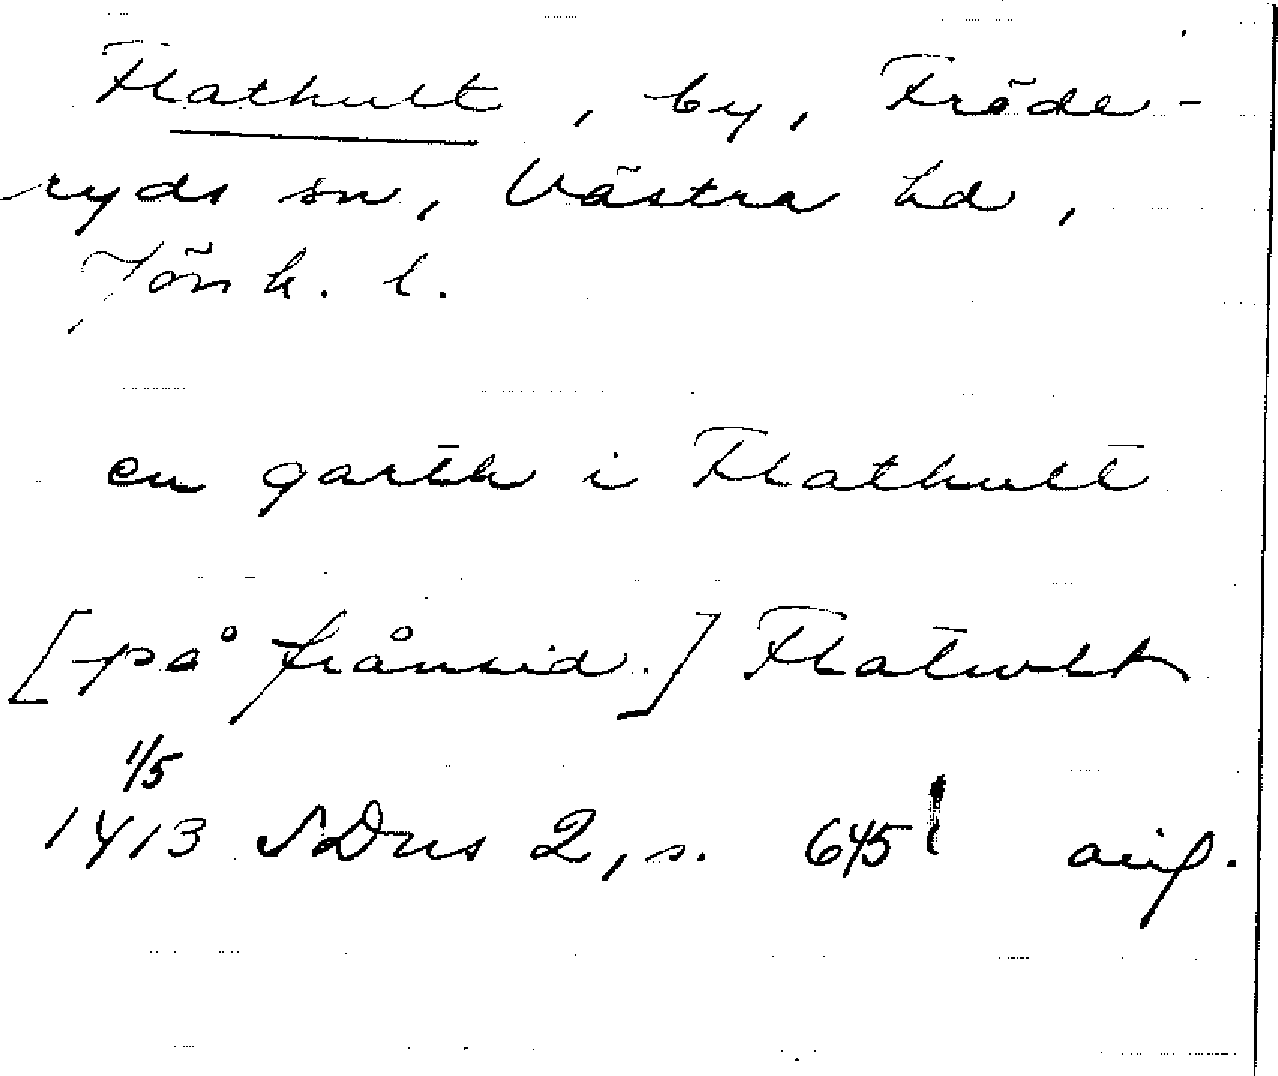 Flathult, by, Fröde-
ryds sn, Västra hd,
Jönk. l.
en garth i Flathult
[på frånsid.] Flatwlt
1/5
1413 SDns 2, s. 645 avf.